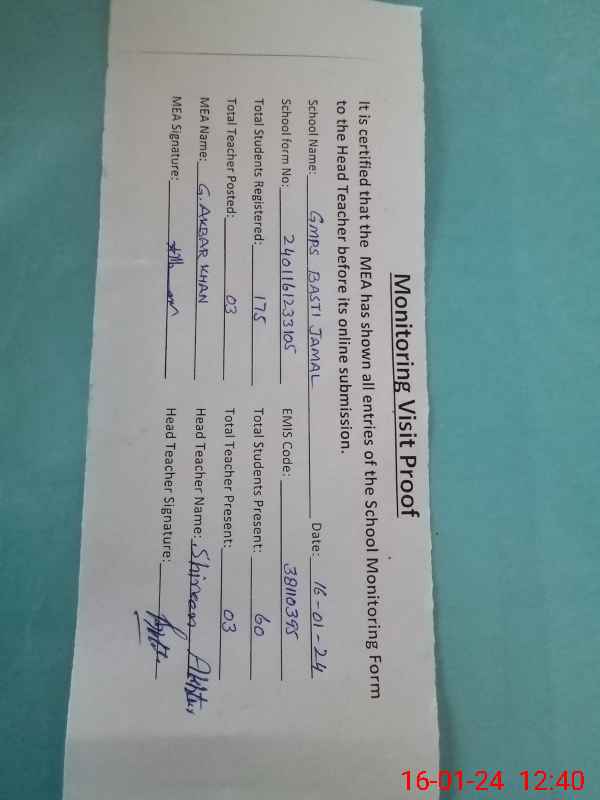 Monitoring Visit Proof
It is certified that the MEA has shown all entries of the School Monitoring Form
to the Head Teacher before its online submission.
School Name: GMPS BASTI JAMAL Date: 16-01-24
School form No: 2401161233105 EMIS Code: 38110395
Total Students Registered: 175 Total Students Present: 60
Total Teacher Posted: 03 Total Teacher Present: 03
MEA Name: G. AKBAR KHAN Head Teacher Name: Shireen Akhtar
MEA Signature: Head Teacher Signature:
16-01-24 12:40